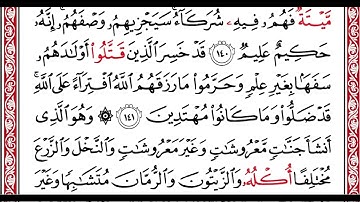 مَيْتَةٌ فَهُمْ فِيهِ شُرَكَآءُۚ سَيَجْزِيهِمْ وَصْفَهُمْۚ إِنَّهُۥ
حَكِيمٌ عَلِيمٌ ١٤٠ قَدْ خَسِرَ ٱلَّذِينَ قَتَّلُوٓاْ أَوْلَٰدَهُمْ
سَفَهَۢا بِغَيْرِ عِلْمٍ وَحَرَّمُواْ مَا رَزَقَهُمُ ٱللَّهُ ٱفْتِرَآءً عَلَى ٱللَّهِۚ
قَدْ ضَلُّواْ وَمَا كَانُواْ مُهْتَدِينَ ١٤١ ۞ وَهُوَ ٱلَّذِيٓ
أَنشَأَ جَنَّٰتٍ مَّعْرُوشَٰتٍ وَغَيْرَ مَعْرُوشَٰتٍ وَٱلنَّخْلَ وَٱلزَّرْعَ
مُخْتَلِفًا أُكُلُهُۥ وَٱلزَّيْتُونَ وَٱلرُّمَّانَ مُتَشَٰبِهًا وَغَيْرَ